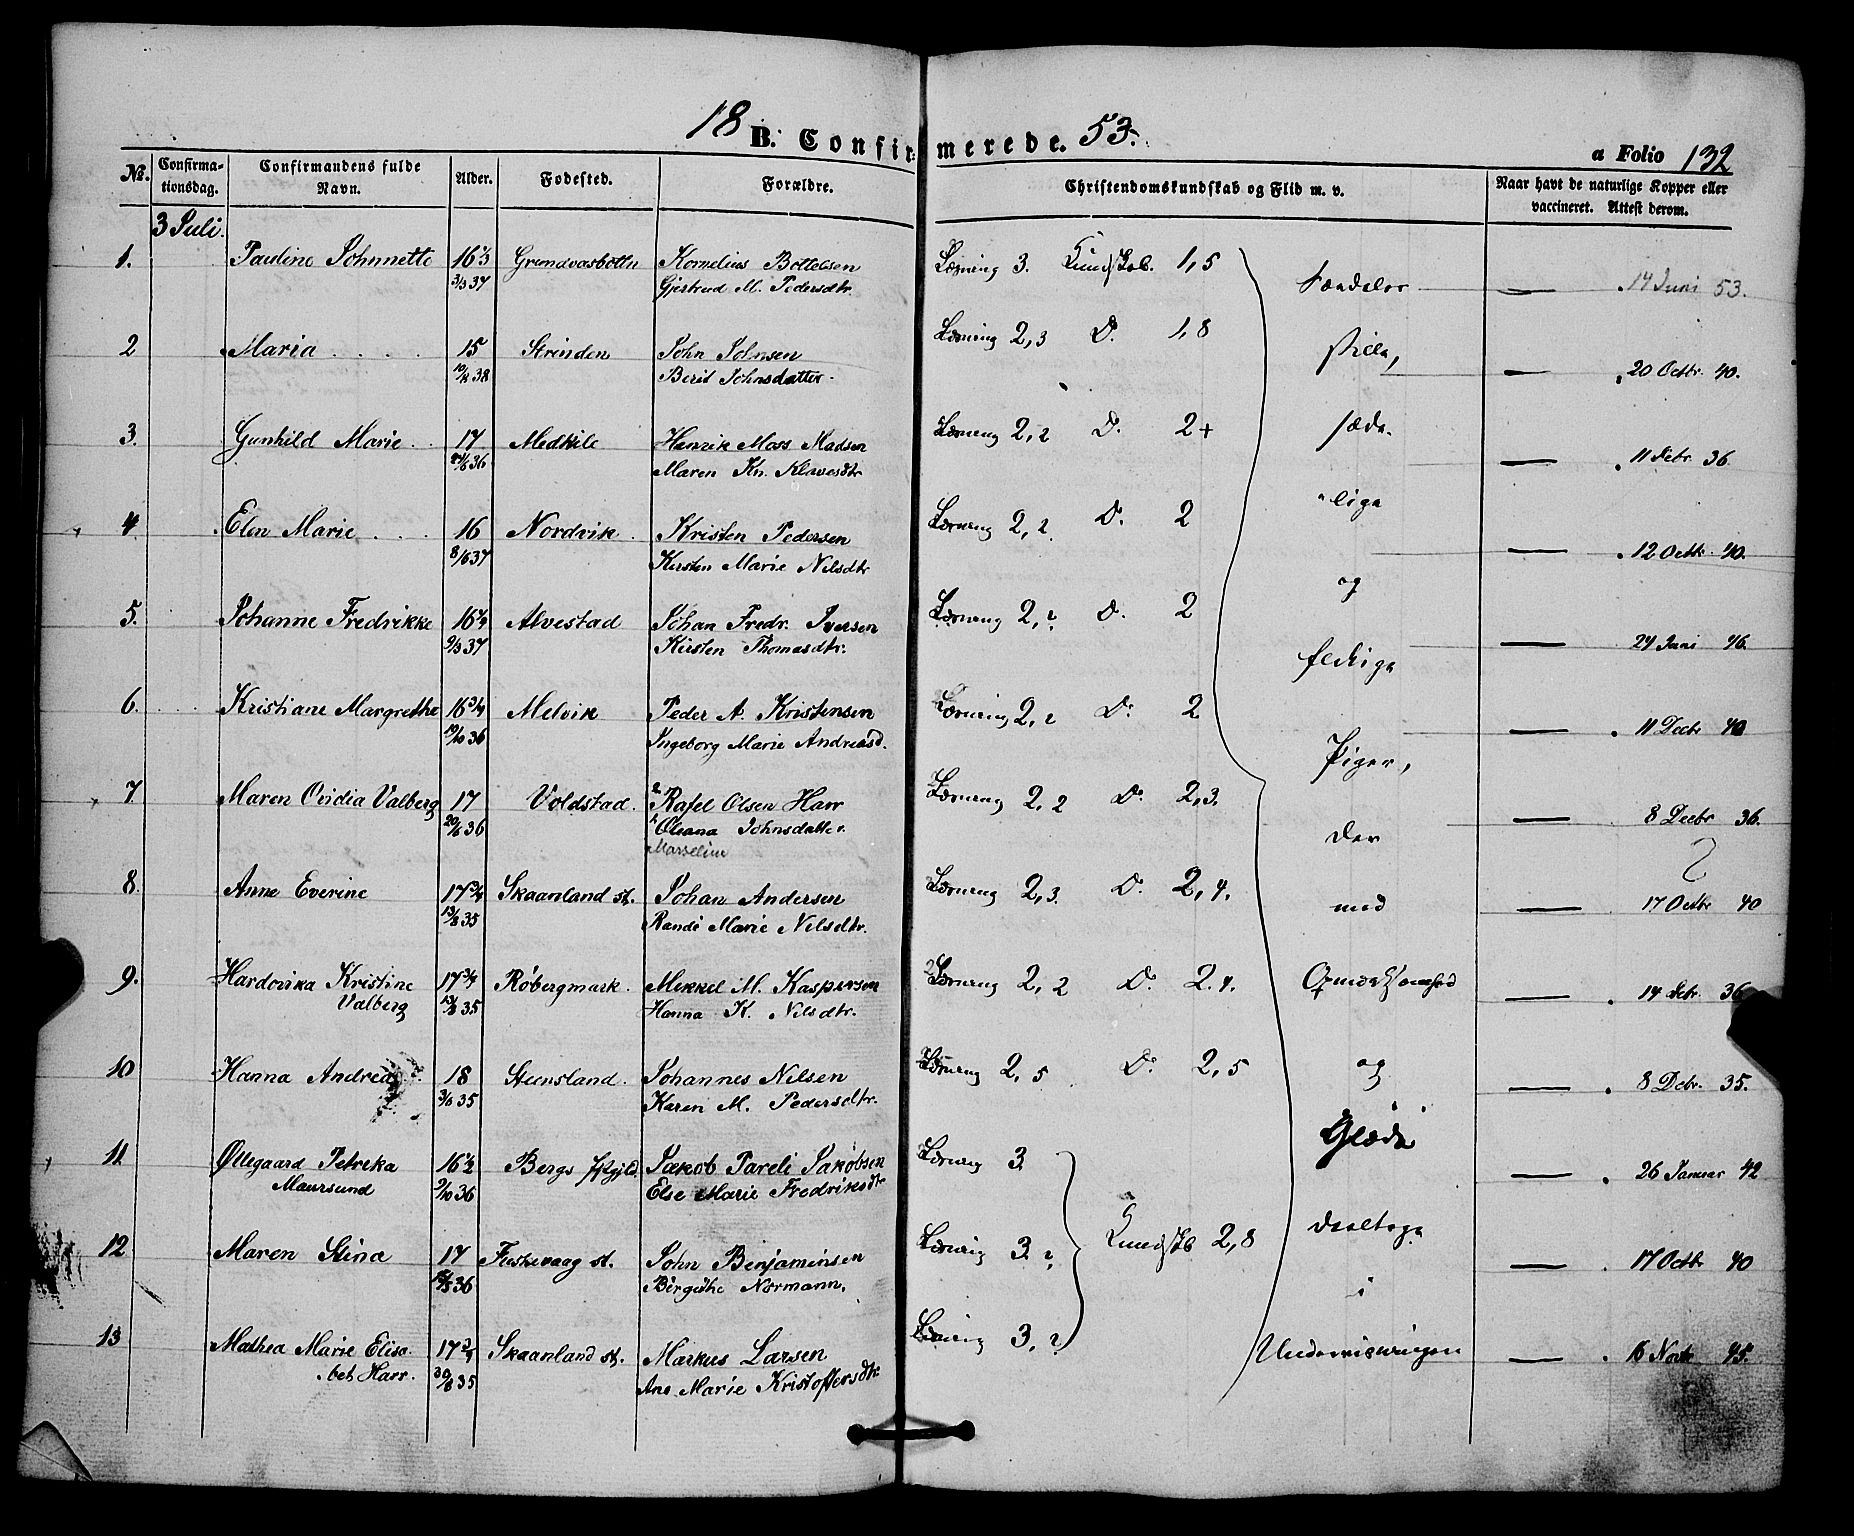 18 B. Confirmerede. 53.
a Folio 132
No. Confirmationsdag. Confirmandens fulde Navn. Alder. Fødested. Forældre. Christendomskundskab og Flid m. v. Naar havt de naturlige Kopper eller vaccineret. Attest derom.
3 Juli.
1. Pauline Johnnette 16 1/3 Kornelius Bottelsen Læsning 3. Kundskab. 1,5 — 14 Juni 53.
3/3 37 Gjertrud M. Pedersdtr.
2 Maria 15 Strinden John Johnsen Læsning 2,3 Do. 1,8 stille, — 20 Octbr. 40.
38 Berit Johnsdatter.
3. Gunhild Marie 17 Medkile Henrik Moss Madsen Læsning 2,2 Do. 2+ sæde- — 11 Debr. 36.
36 Maren Kn. Klavesdtr
4. Elen Marie 16 Nordvik Kristen Pedersen Læsning 2,2 Do. 2 lige — 12 Octbr. 40.
8/6 37 Kirsten Marie Nilsdtr
5. Johanne Fredrikke 16 1/4 Alvestad Johan Fredr. Iversen Læsning 2,2 Do. 2 og — 24 Juni 46.
9/3 37 Kirsten Thomasdtr.
6. Kristiane Margrethe 16 3/4 Melvik Peder A. Kristensen Læsning 2,2 Do. 2 flittige — 11 Decbr 40
19/10 36 Ingeborg Marie Andreasd.
7. Maren Ovidia Valberg 17 Voldstad. Rafel Olsen Harr Læsning 2,2 Do. 2,3. Piger, — 8 Decbr 36.
20/6 36 Oleana Johnsdatter
Marseline
8. Anne Everine 17 3/4 Skaanland st. Johan Andersen Læsning 2,3. Do. 2,4. der med — 17 Octbr 40
13/8 35 Randi Marie Nilsdtr.
9. Hardovika Kristine 17 3/4 Røbergmark. Mikkel M. Kaspersen Læsning 2,2 Do. 2.4. Opmærksomhed — 14 Debr. 36
Valberg 35 Hanna K. Nilsdtr.
10 Hanna Andrea 18 Steensland. Johannes Nilsen Læsning 2,5 Do. 2,5 og — 8 Debr. 35.
35 Karen M. Pedersdtr.
11. Øllegaard Petreka 16 1/2 Bergs Jakob Pareli Jakobsen Læsning 3. Glæde — 26 Januar 42
Maursund 9/10 36 Else Marie Fredriksdtr
12 Maren Stina 17 Fiskevaag st. John Benjaminsen Læsning 3.2 Kundskb 2,8 deeltoge — 17 Octbr 40
36 Birgithe Normann.
i
13 Mathea Marie Elisa- 17 3/4 Skaanland st. Markus Larsen Læsning 3,2 Underviisningen — 16 Novbr 45.
bet Harr. 30/8 35 Ane Marie Kristoffersdtr